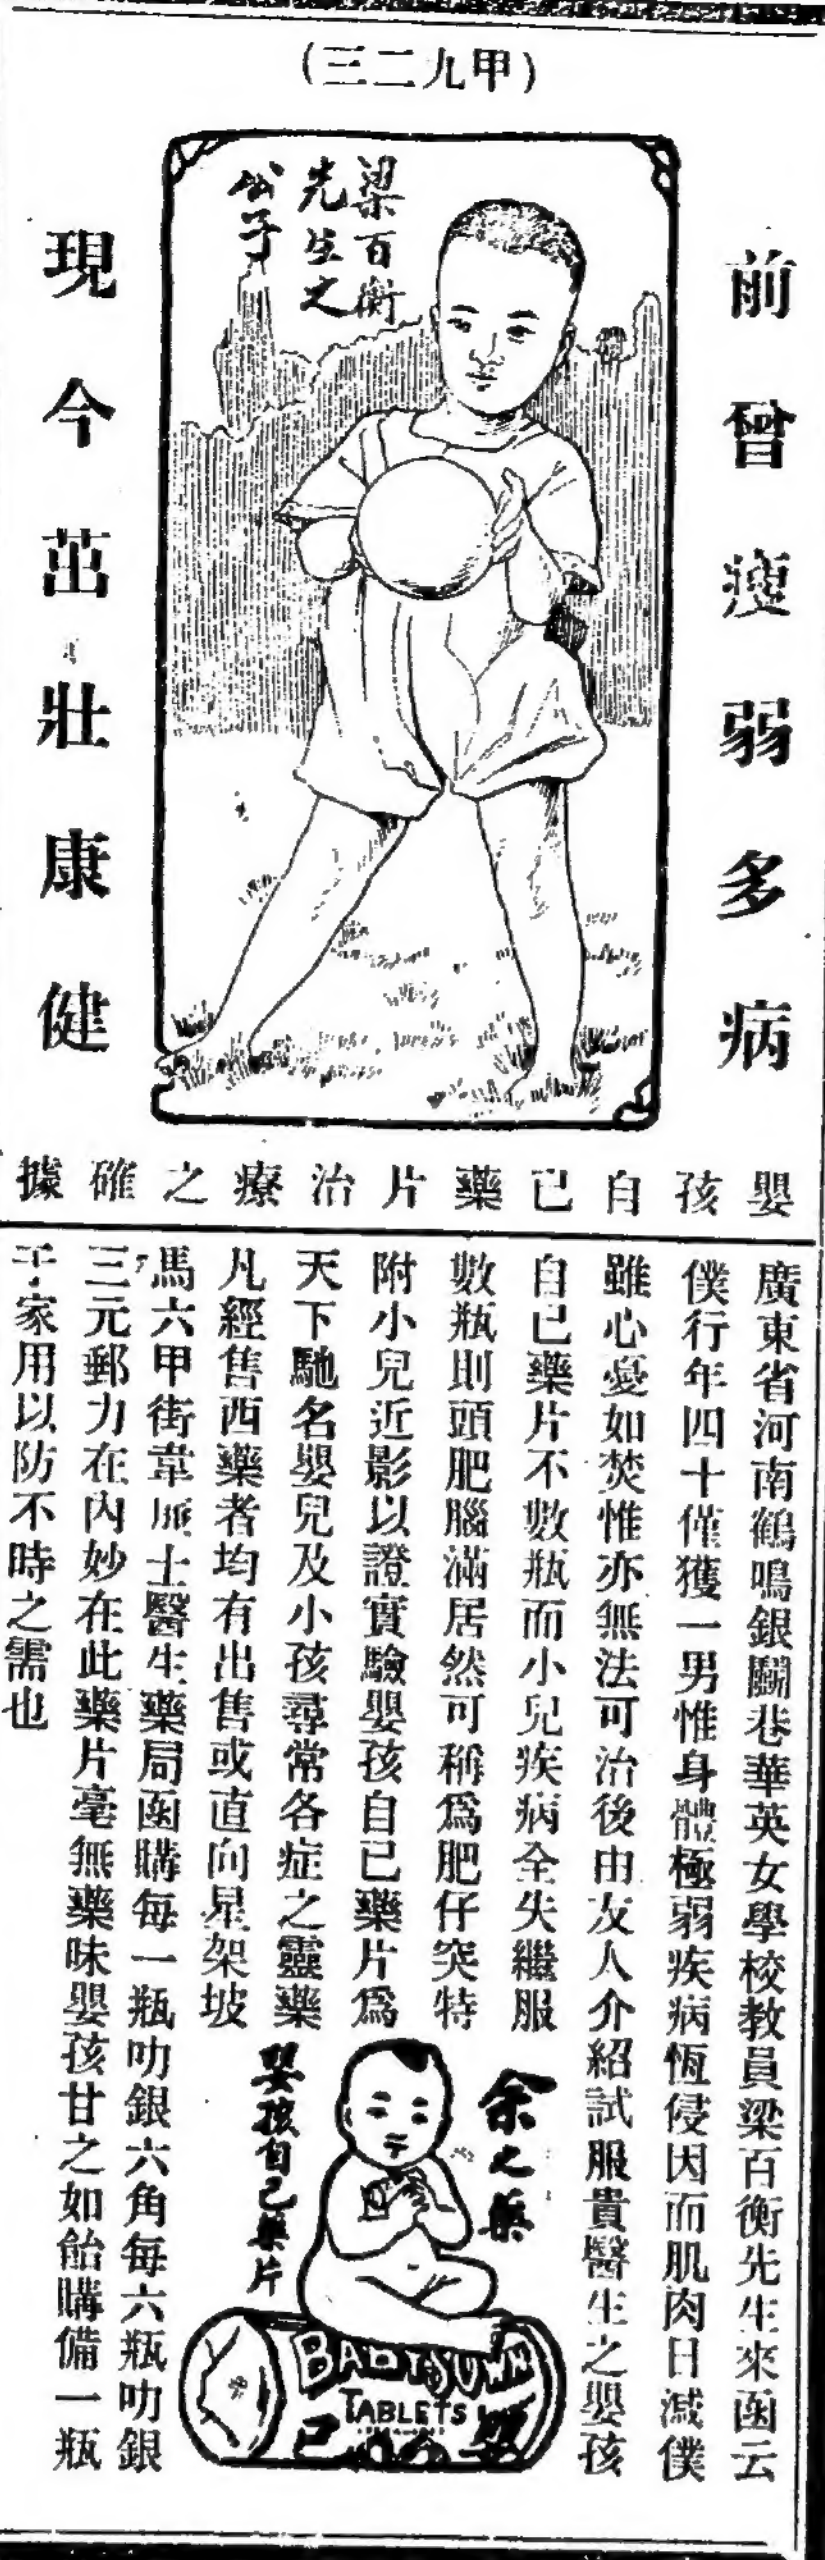 (三二九甲)
前曾瘦弱多病
梁百衡
先生之
公子
現今茁壯康健
嬰孩自己藥片治療之確據
廣東省河南鶴鳴銀關巷華英女學校教員梁百衡先生來函云
僕行年四十僅獲一男惟身體極弱疾病恆侵因而肌肉日減僕
雖心憂如焚惟亦無法可治後由友人介紹試服貴醫生之嬰孩
自己藥片不數瓶而小兒疾病全失繼服
數瓶則頭肥腦滿居然可稱爲肥仔突特
附小兒近影以證實驗嬰孩自己藥片爲
天下馳名嬰兒及小孩尋常各症之靈藥
凡經售西藥者均有出售或直向星架坡
馬六甲街韋廉士醫生藥局函購每一瓶叻銀六角每六瓶叻銀
三元郵力在內妙在此藥片毫無藥味嬰孩甘之如飴購備一瓶
于家用以防不時之需也
余之藥
嬰孩自己藥片
BABY'S OWN
TABLETS